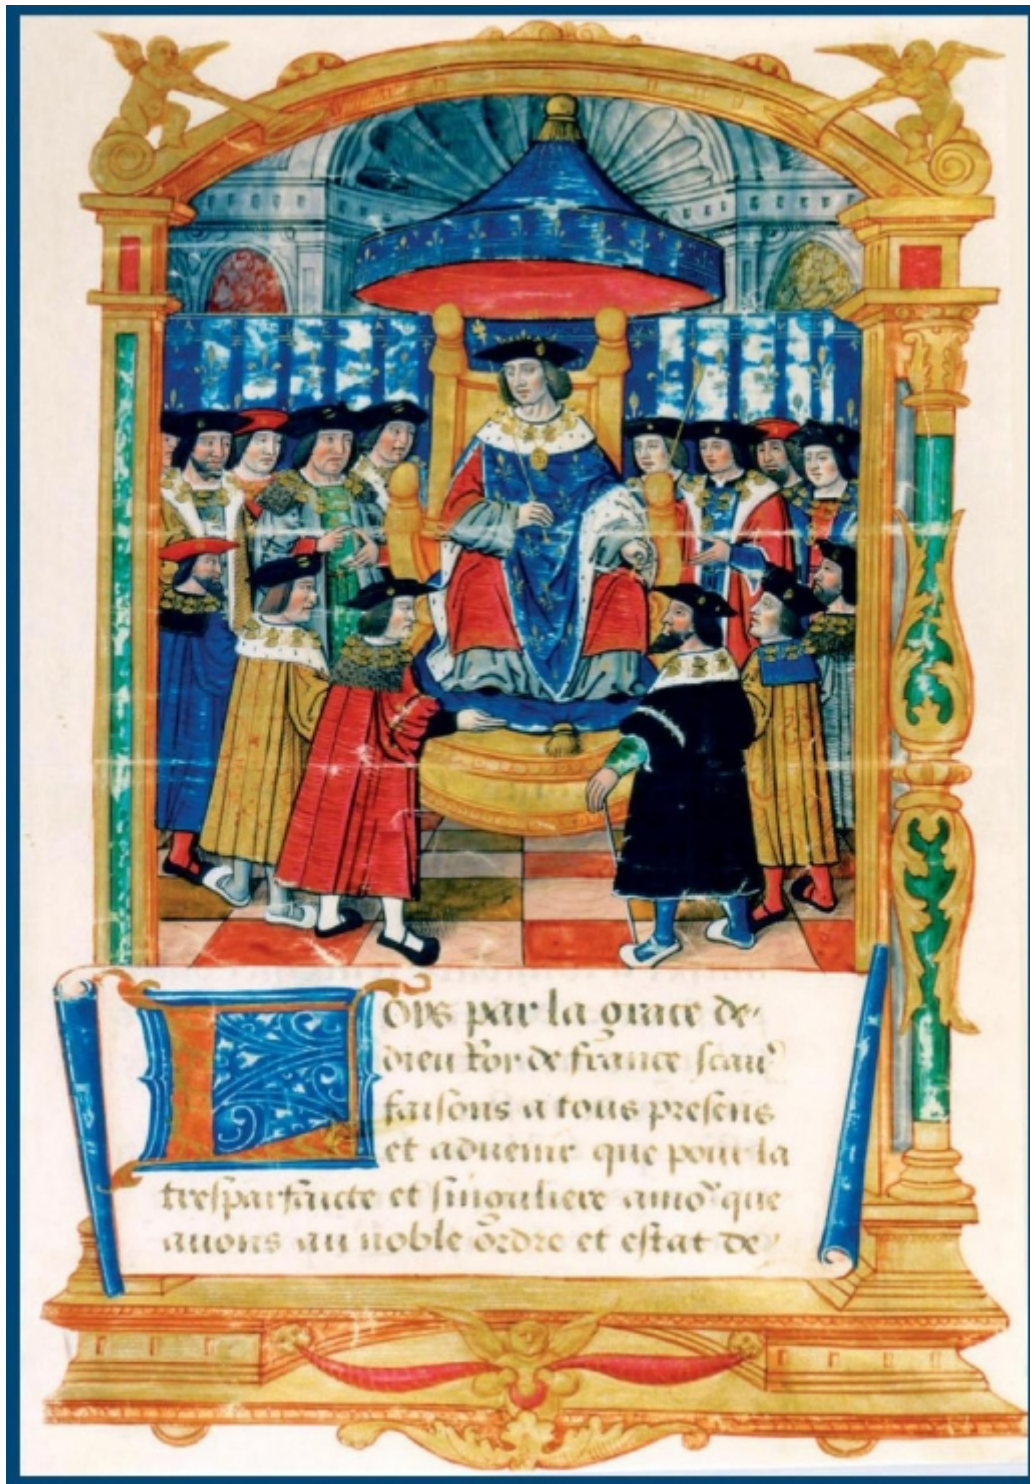 Loys par la grace de
dieu Roy de france scauoir
faisons a tous presens
et aduenir que pour la
tresparfaicte et singuliere amoʳ que
auons au noble ordre et estat de